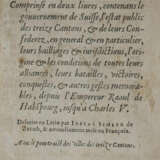 Comprinse en deux liures, contenans le
gouuernement de Suisse, l'estat public
des treize Cantons, & de leurs Confe-
derez, en general & en particulier,
leurs bailliages & iurisdictions, l'ori-
gine & les conditions de toutes leurs
alliances, leurs batailles, victoires,
conquestes, & autres gestes memora-
bles, depuis l'Empereur Raoul de
Habspourg, iusqu'à Charles V.
Descrite en Latin par Iosias Simler de
Zurich, & nouuellement mise en François.
Auec le pourtraict des villes des treize Cantons.